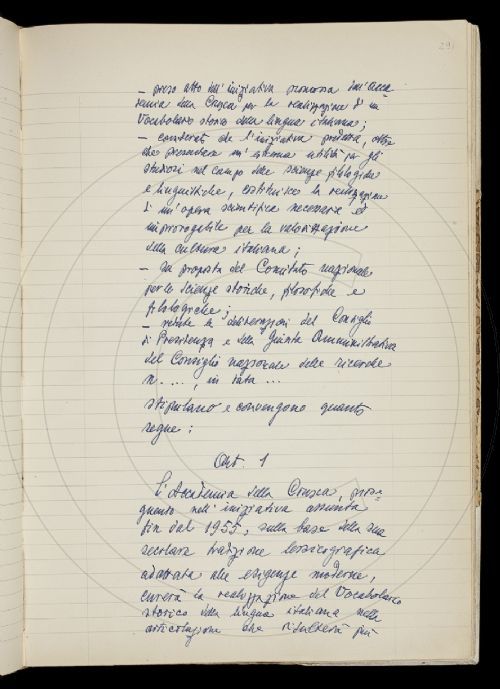 291
– preso atto dell'iniziativa promossa dall'Acca=
demia della Crusca per la realizzazione di un
Vocabolario storico della lingua italiana;
– considerato che l'iniziativa predetta, oltre
che presentare un'estrema utilità per gli
studiosi nel campo delle scienze filologiche
e linguistiche, costituisce la realizzazione
di un'opera scientifica necessaria ed
improrogabile per la valorizzazione
della cultura italiana;
– su proposta del Comitato nazionale
per le scienze storiche, filosofiche e
filologiche;
– vedute le deliberazioni del Consiglio
di Presidenza e della Giunta Amministrativa
del Consiglio nazionale delle ricerche
n. ...., in data ...
stipulano e convengono quanto
segue:
Art. 1
L'Accademia della Crusca, prose=
guendo nell'iniziativa assunta
fin dal 1955, sulla base della sua
secolare tradizione lessicografica
adattata alle esigenze moderne,
curerà la realizzazione del Vocabolario
storico della lingua italiana nella
articolazione che risulterà più